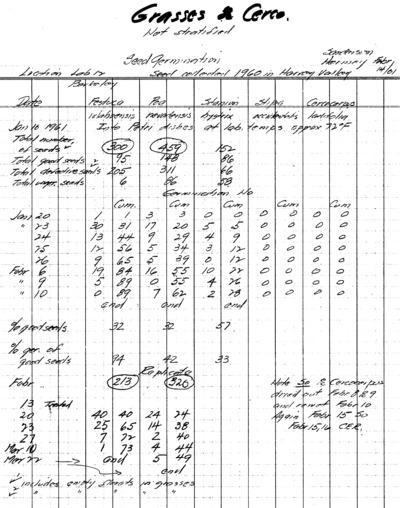 Grasses & Cerco.
Not stratified
Seed Germination
Location Lab 12 Seed collected 1960 in Harney Valley
Berkeley
Date Festuca Poa Sitanion Stipa Cercocarpus
idahoensis nevadensis hystrix occidentalis ledifolius
Jan 10 1961 Into Petri dishes at lab. temps approx 72°F
Total number
of seeds ✓ 300 459 152
Total good seeds ✓ 95 148 86
Total defective seeds 205 311 66
Total unger. seeds 6 86 58
Germination No
Cum Cum Cum Cum Cum
Jan 20 1 1 3 3 0 0 0 0 0 0
" 23 30 31 17 20 5 5 0 0 0 0
24 13 44 9 29 4 9 0 0 0 0
25 12 56 5 34 3 12 0 0 0 0
26 9 65 5 39 0 12 0 0 0 0
Febr 6 19 84 16 55 10 22 0 0 0 0
" 9 5 89 0 55 4 26 0 0 0 0
" 10 0 89 7 62 2 28 0 0 0 0
end end end
% good seeds 32 32 57
% ger. of
good seeds 94 42 33
Replicate
Febr 213 326
13 Treated
20 40 40 24 24
23 25 65 14 38
27 7 72 2 40
Mar 10 1 73 4 44
Mar 22 → end 5 49
end
✓ includes empty florets in grasses
✓ " " " " "
Note So & Cercocarpus
dried out Febr 8 & 9
and rewet Febr 10
Again Febr 15 So
Febr 15, 16 CER.